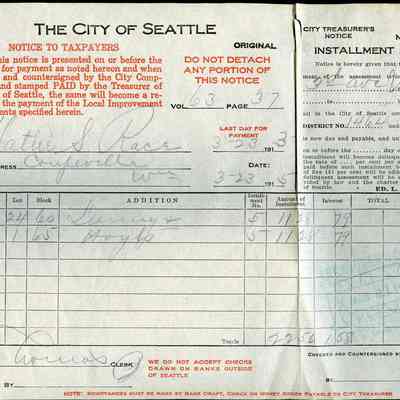 THE CITY OF SEATTLE
NOTICE TO TAXPAYERS
ORIGINAL
his notice is presented on or before the
for payment as noted herein and when
and countersigned by the City Comp-
and stamped PAID by the Treasurer of
of Seattle, the same will become a re-
the payment of the Local Improvement
ents specified herein.
DO NOT DETACH
ANY PORTION OF
THIS NOTICE
VOL. 63 PAGE 37
LAST DAY FOR
PAYMENT
3-23 1913
DRESS
DATE:
3-23 1915
Lot Block ADDITION Install-ment No. Amount of Installment Interest TOTAL
24 60 5 11 28 79
1 65 5 11 28 79
Totals 22 56 1 58
Thomas CLERK
BY
WE DO NOT ACCEPT CHECKS
DRAWN ON BANKS OUTSIDE
OF SEATTLE
NOTE: REMITTANCES MUST BE MADE BY BANK DRAFT, CHECK OR MONEY ORDER PAYABLE TO CITY TREASURER
CITY TREASURER'S
NOTICE
INSTALLMENT
Notice is hereby given that
ment of the assessment levied
out in the City of Seattle under
DISTRICT NO.
is now due and payable, and un
or before the day of
ing installment will become delinque
the rate of per cent per a
paid before such installment be
five (5) per cent will be added
delinquent assessment will be en
vided by law and the charter
of Seattle.
ED. L.
CHECKED AND COUNTERSIGNED
BY